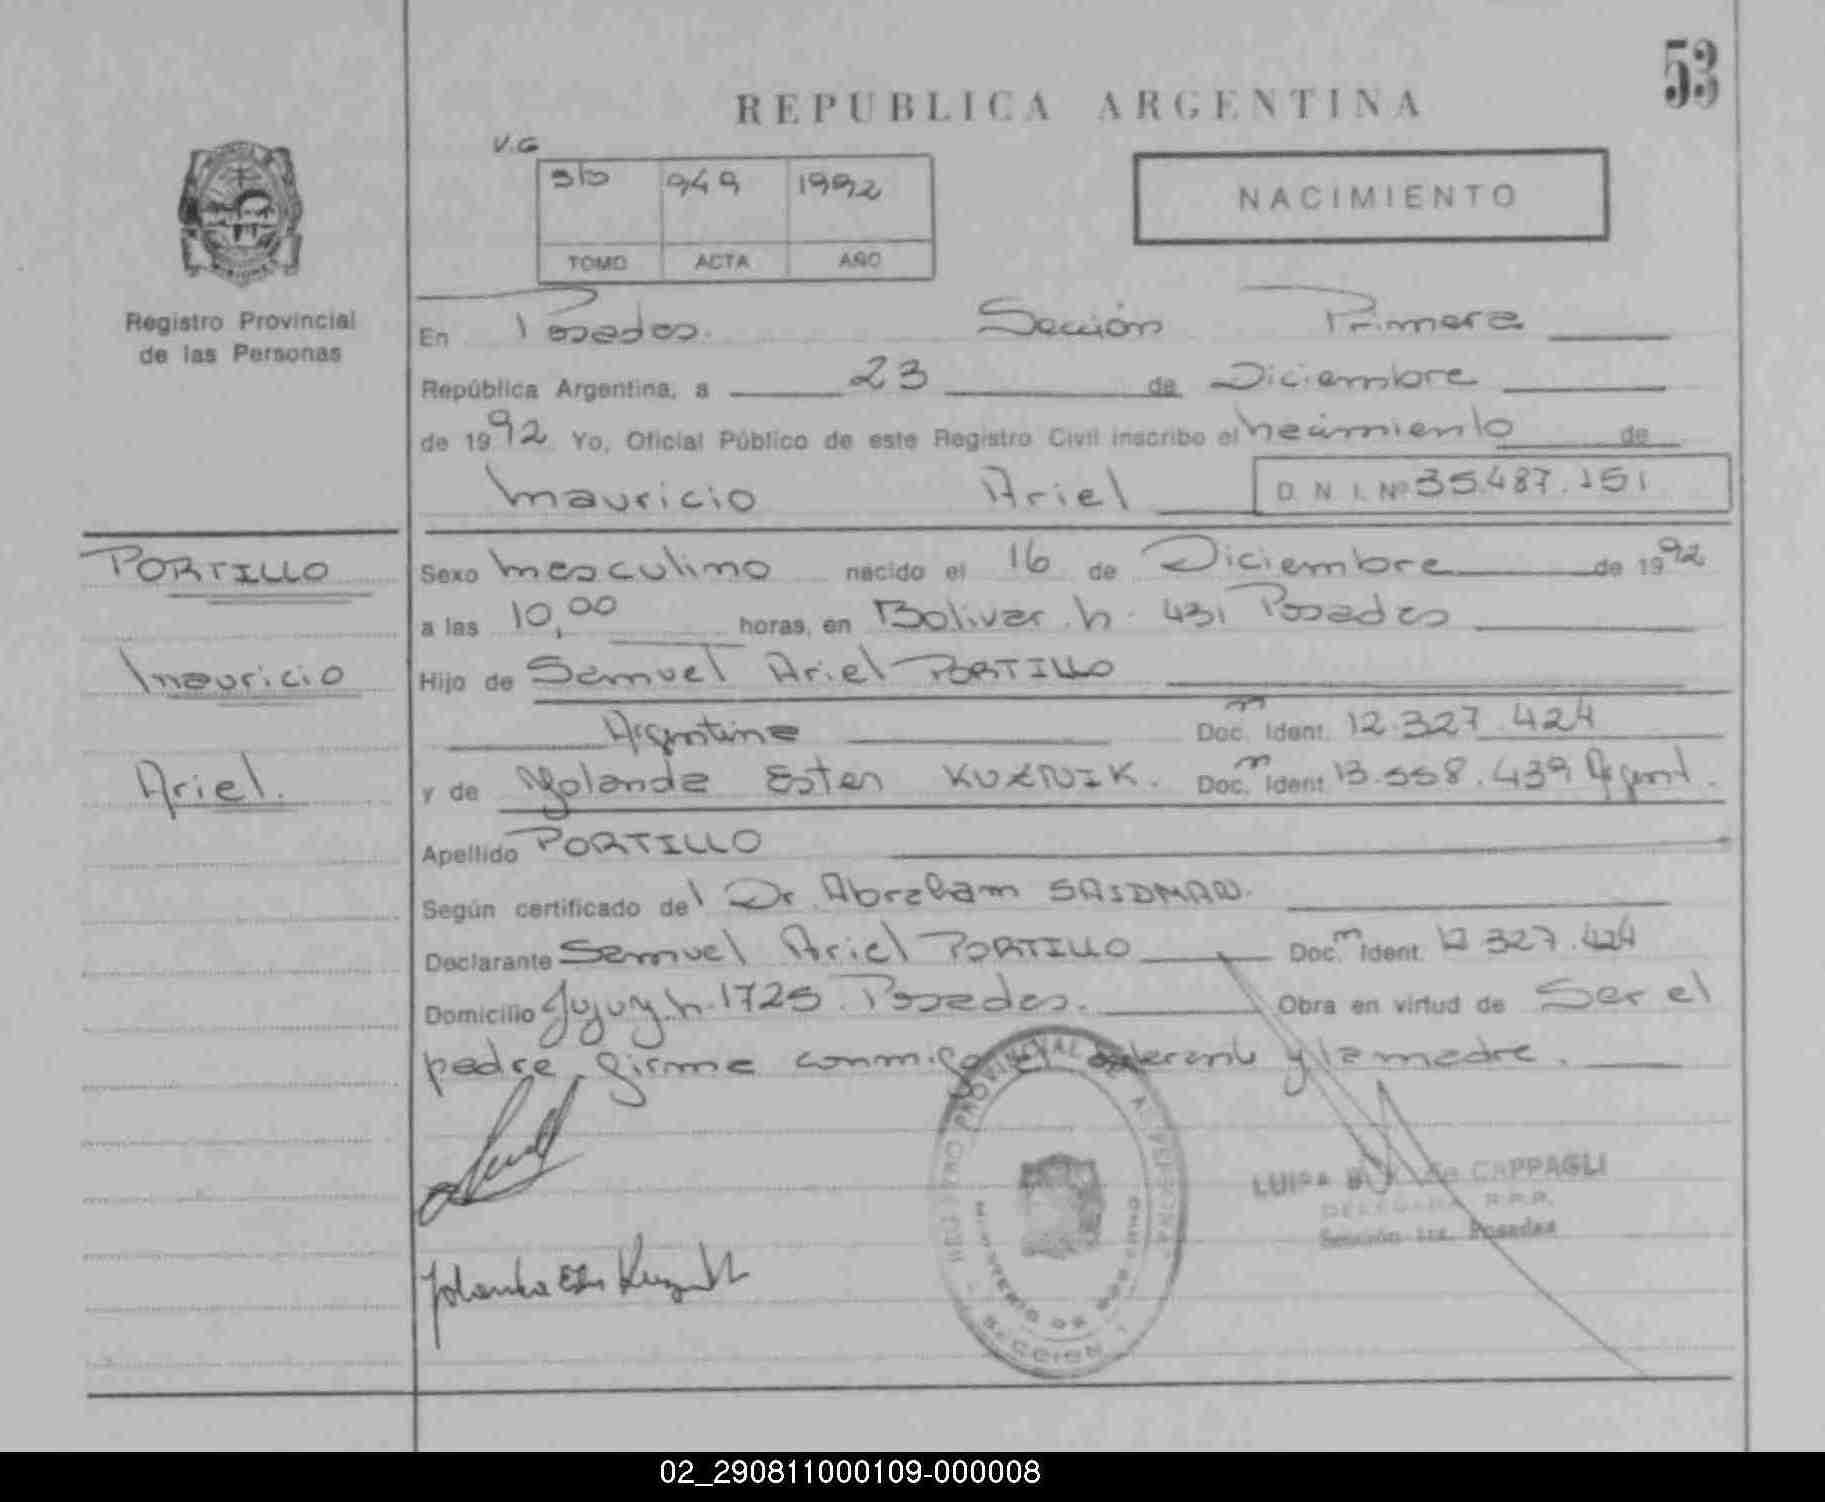 53
REPUBLICA ARGENTINA
V.G
949 1992
TOMO ACTA AÑO
NACIMIENTO
MISIONES
Registro Provincial
de las Personas
En Posadas. Sección Primera
República Argentina, a 23 de Diciembre
de 1992 Yo, Oficial Público de este Registro Civil inscribo el nacimiento de
Mauricio Ariel D N I. Nº 35.487.151
PORTILLO
Mauricio
Ariel.
Sexo masculino nacido el 16 de Diciembre de 1992
a las 10,00 horas, en Bolivar n. 431 Posadas
Hijo de Samuel Ariel PORTILLO
Argentina Doc. m Ident. 12.327.424
y de Yolanda Ester KUZNIK. Doc. m Ident. 13.558.439 Argent.
Apellido PORTILLO
Según certificado del Dr. Abraham SAIDMAN.
Declarante Samuel Ariel PORTILLO Doc. m Ident. 12.327.424
Domicilio Jujuy n. 1725. Posadas. Obra en virtud de Ser el
padre firma conmigo el y la madre.
REGISTRO PROVINCIAL DE LAS PERSONAS
MINISTERIO DE GOBIERNO
SECCION 1
LUISA de CAPPAGLI
DELEGADA R.P.P.
Sección 1ra. Posadas
Yolanda Ester Kuznik
02_290811000109-000008